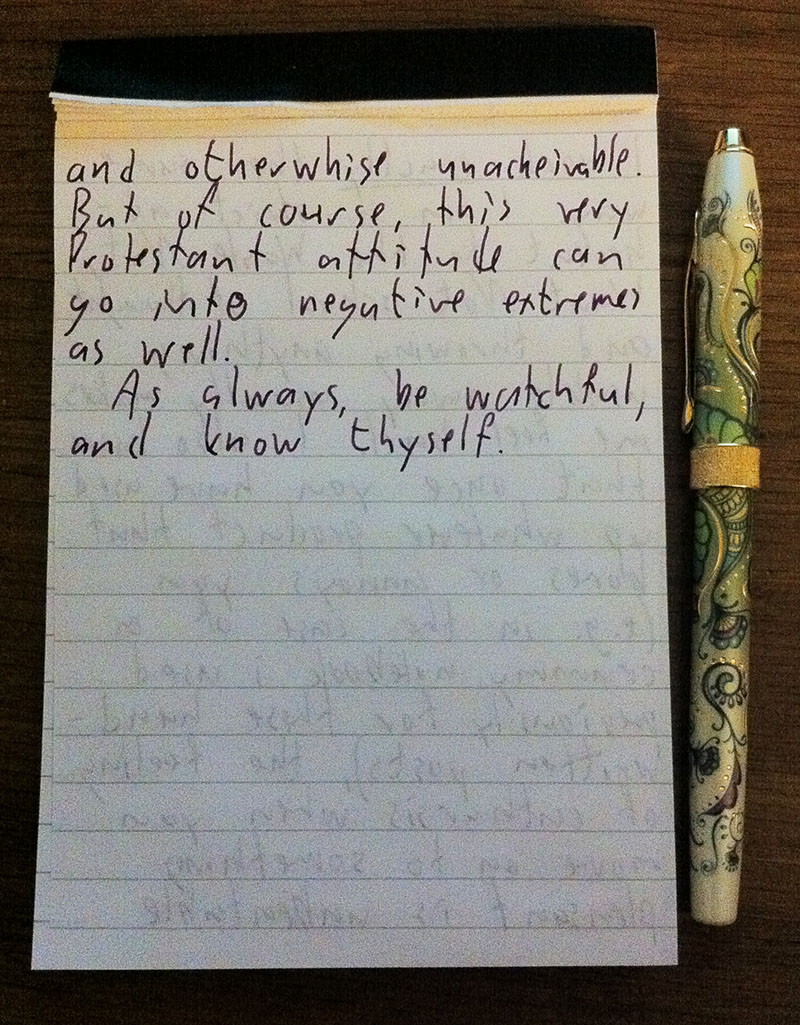 and otherwhise unacheivable.
But of course, this very
Protestant attitude can
go into negative extremes
as well.
As always, be watchful,
and know thyself.